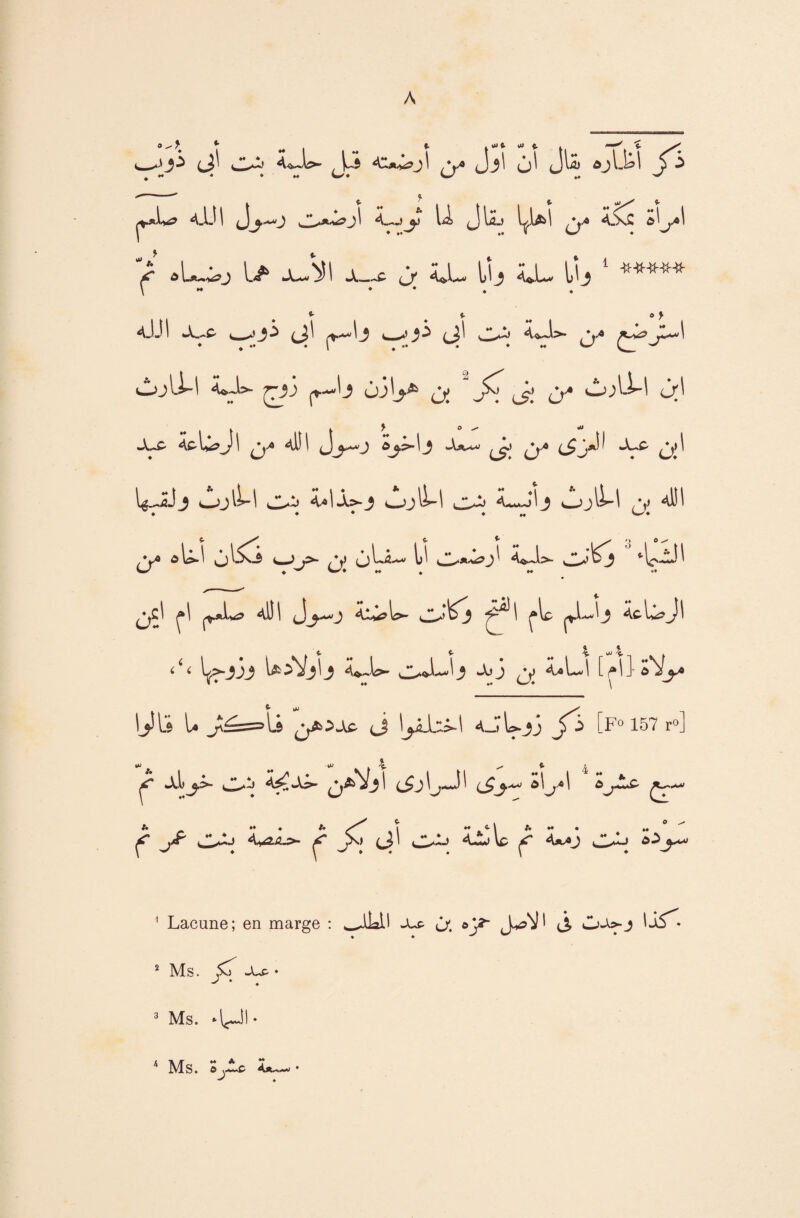 ٨
ذكر أظآره يقال أنّ أوّل من أرضعته قبل حليمة بنت أبى ذؤيب
امرأة بمكّة من أهلها يقال لها ثويبة أرضعت رسول الله صلعم
***** ¹ وإنا سلمة وإنا سلمة بن عبد الأسد هما رضيعاه ثمّ
استرضع من حليمة بنت أبى ذؤيب واسم أبى ذؤيب عبد الله
ابن الحارث من بنى بكر ² بن هوازن واسم زوج حليمة الحارث
ابن عبد العزّى من بنى سعد وأخوة رسول الله من الرضاعة عبد
الله بن الحارث وأنيسة بنت الحارث وخدامة بنت الحارث ولقبها
الشيماء ³ وكانت حليمة أرضعت أبا سفيان بن حرب فكان أخاه من
الرضاعة واسلم عام الفتح وكانت حاضنة رسول الله صلعم أم أيمن
مولاة [أمّ] أسامة بن زيد واسلمت حليمة وأولادها وزوجها ،،
[F° 157 r°] ذكر زوجاته اختلفوا فى عددهنّ فأكثر ما قالوا
سبع عشرة ⁴ امرأة سوى السرارى أولاهنّ خديجة بنت خويلد ثمّ
سودة بنت زمعة ثم عائشة بنت أبى بكر ثم حفصة بنت عمر ثم
¹ Lacune; en marge : كذا وجدت فى الأصل حمزة بن عبد المطلب.
² Ms. عبد بكر.
³ Ms. السماء.
⁴ Ms. سبعة عشرة.